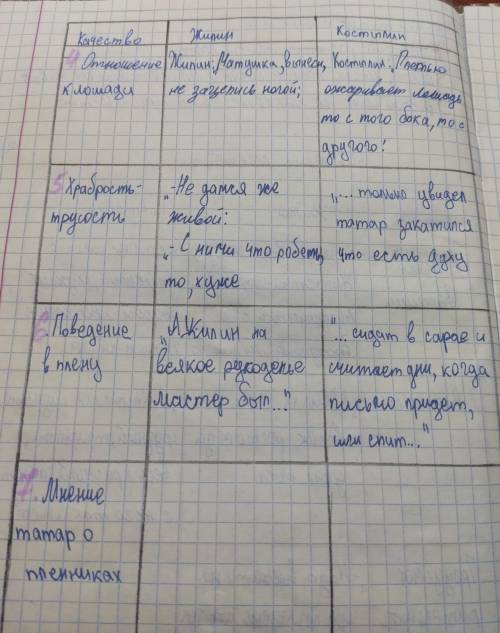 Качество Жилин Костылин
4 Отношение Жилин: Матушка, вынеси, Костылин. Плетью
к лошади не зацепись ногой; ожаривает лошадь
то с того бока, то с
другого!
5 Храбрость- „-Не дамся же „... только увидел
трусость живой: татар закатился
„- С ними что робеть, что есть духу
то, хуже
6. Поведение „А Жилин на "... сидит в сарае и
в плену всякое рукоделье считает дни, когда
мастер был..." письмо придет,
или спит..."
7. Мнение
татар о
пленниках